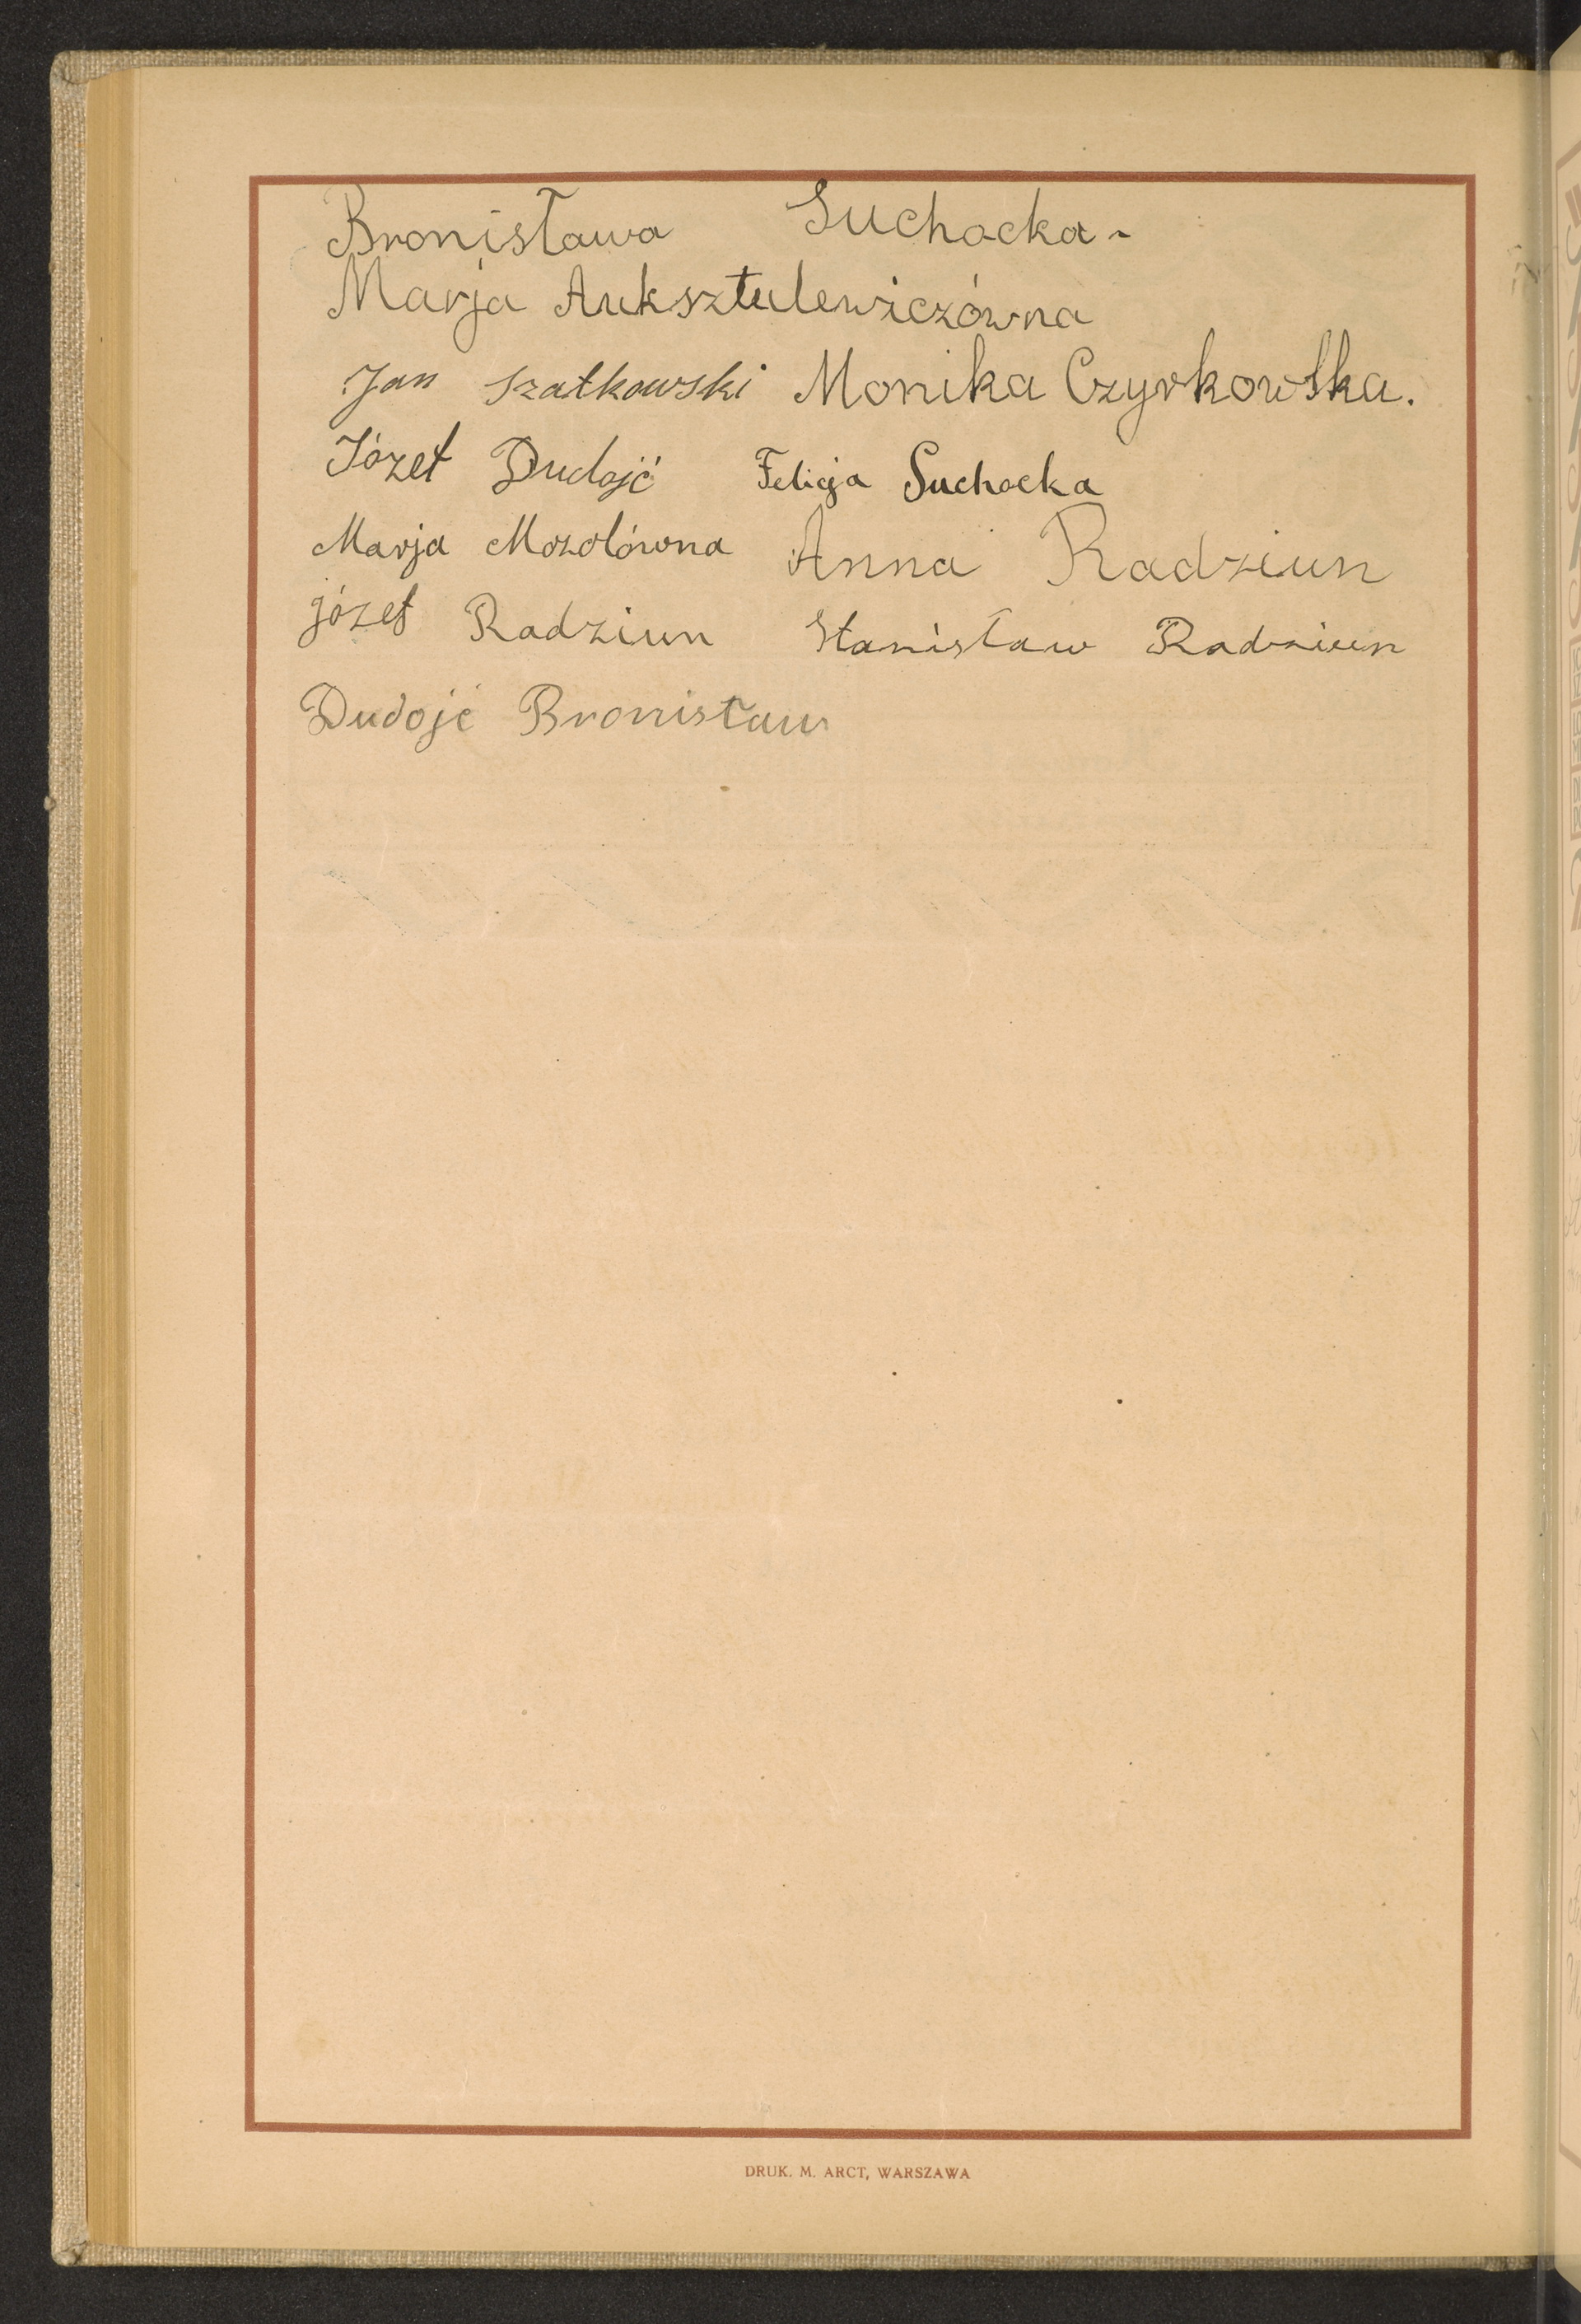 Bronisława Suchocka-
Marja Auksztulewiczówna
Jan Szatkowski Monika Czyrkowska.
Józef Dudojć Felicja Suchocka
Marja Mozolówna Anna Radziun
józef Radziun Stanisław Radziun
Dudojć Bronisław
DRUK. M. ARCT, WARSZAWA